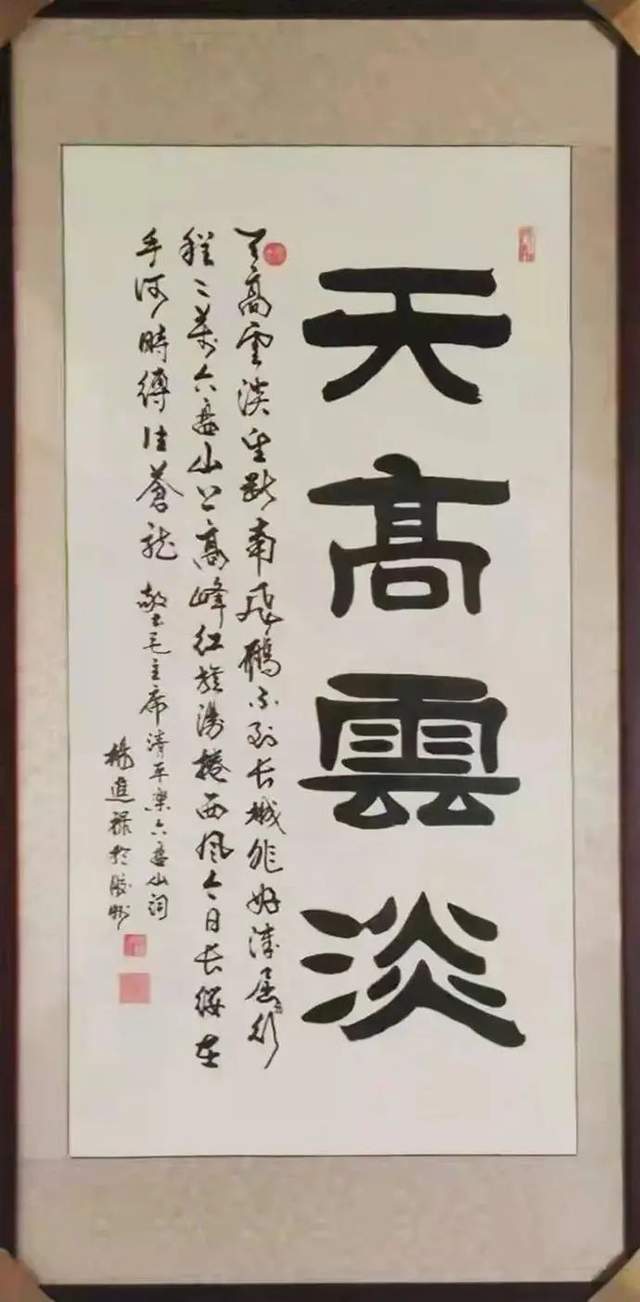 天高雲淡
天高雲淡望斷南飛鴈不到长城非好漢屈指行
程二萬六盤山上高峰红旗漫捲西风今日长缨在
手何時縛住蒼龙 敬书毛主席清平樂六盤山词
楊進禄於州